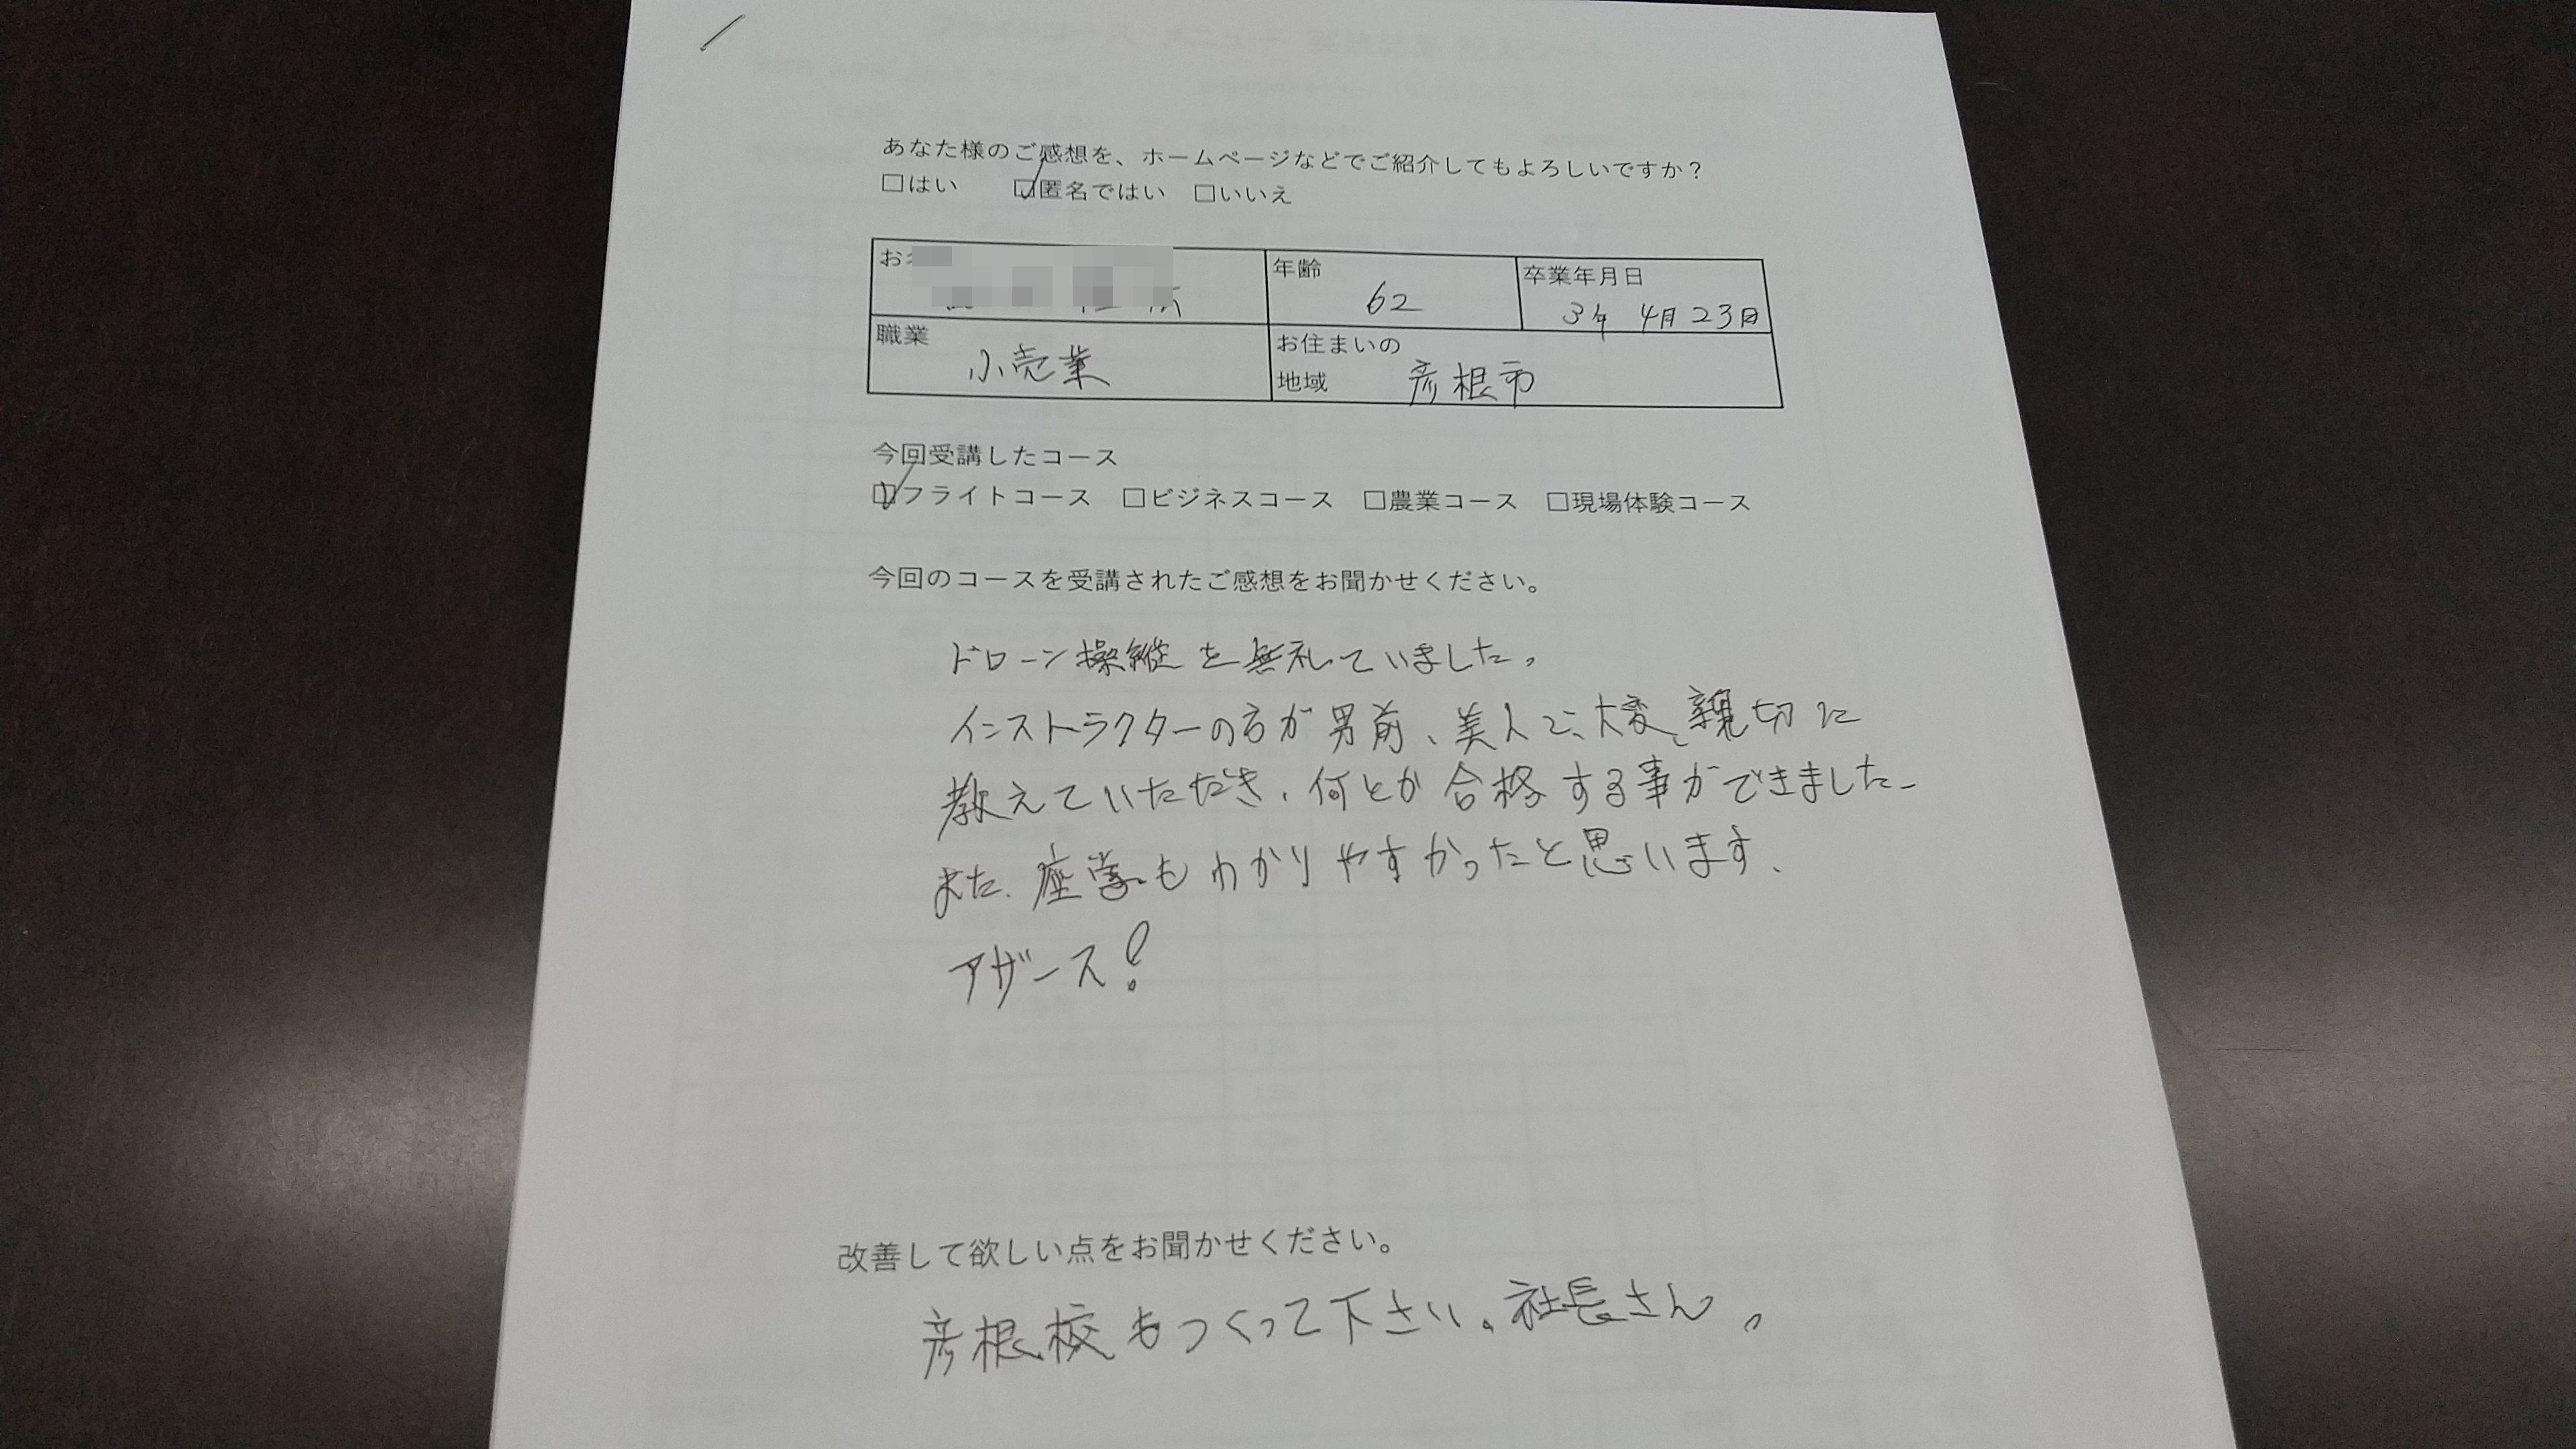 あなた様のご感想を、ホームページなどでご紹介してもよろしいですか?
□はい ☑匿名ではい □いいえ
お
年齢
62
卒業年月日
3年 4月23日
職業
小売業
お住まいの
地域
彦根市
今回受講したコース
☑フライトコース □ビジネスコース □農業コース □現場体験コース
今回のコースを受講されたご感想をお聞かせください。
ドローン操縦を無礼ていました。
インストラクターの方が男前、美人で、大変、親切に
教えていただき、何とか合格する事ができました。
また、座学もわかりやすかったと思います、
アザース!
改善して欲しい点をお聞かせください。
彦根校もつくって下さい。社長さん。